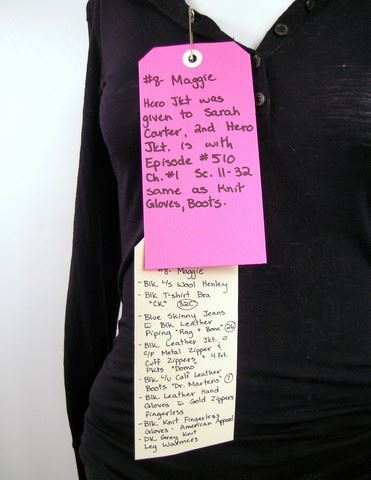 #8- Maggie
Hero Jkt was
given to Sarah
Carter, 2nd Hero
Jkt. is with
Episode #510
Ch. #1 Sc. 11-32
same as Knit
Gloves, Boots.
#8- Maggie
- Blk. L/s Wool Henley
- Blk T-shirt Bra
"CK" 32C
- Blue Skinny Jeans
w Blk Leather
Piping "Rag + Bone" 26
- Blk. Leather Jkt.
C/F Metal Zipper &
Cuff Zippers + 4 Frt.
Pkts "Domo"
- Blk L/u Calf Leather
Boots "Dr. Martens" 7
- Blk Leather Hand
Gloves w Gold Zippers
Fingerless
- Blk Knit Fingerless
Gloves - American Apparel
- DK Grey Knit
Leg Warmers